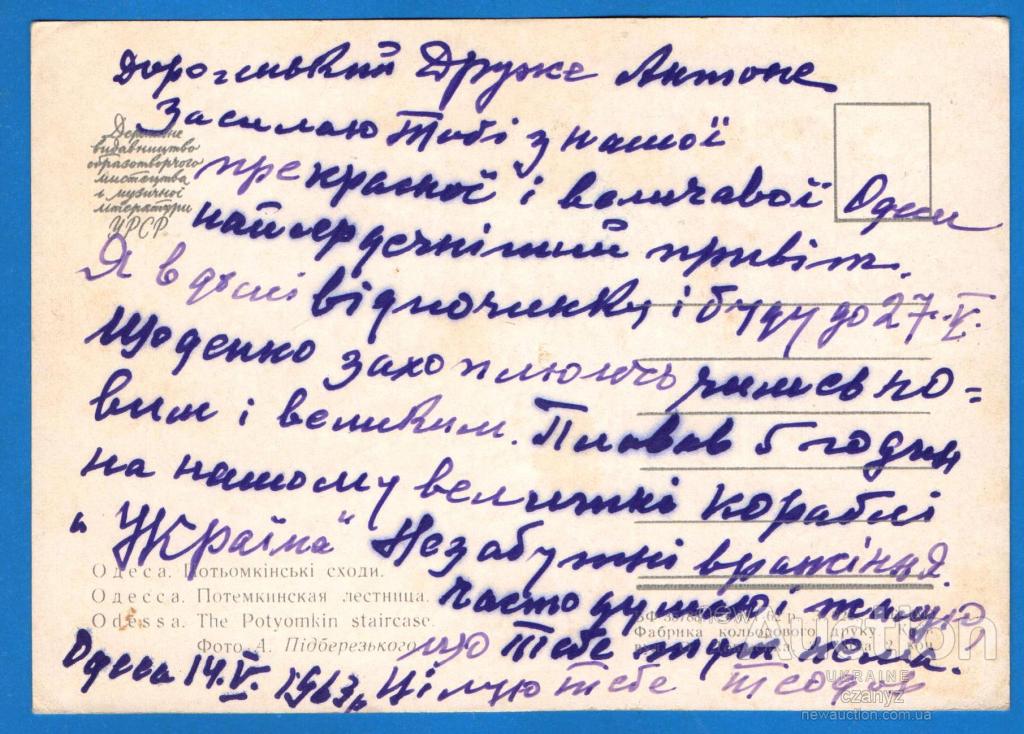 Дорогенький Друже Антоне
Засилаю Тобі з нашої
прекрасної і величавої Одеси
найсердечніший привіт.
Я в домі відпочинку і буду до 27.V.
Щоденно захоплююсь чимсь но-
вим і великим. Плавав 5 годин
на нашому величні кораблі
"Україна" Незабутні вражіння.
Часто думаю і жалую
що Тебе тут нема.
Одеса 14.V. 1963 р. Цілую тебе Теодор
Державне
видавництво
образотворчого
мистецтва
і музичної
літератури
УРСР
Одеса. Потьомкінські сходи.
Одесса. Потемкинская лестница.
Odessa. The Potyomkin staircase.
Фото А. Підберезького
Фабрика кольорового друку.
newAuction
UKRAINE
czanyz
newauction.com.ua